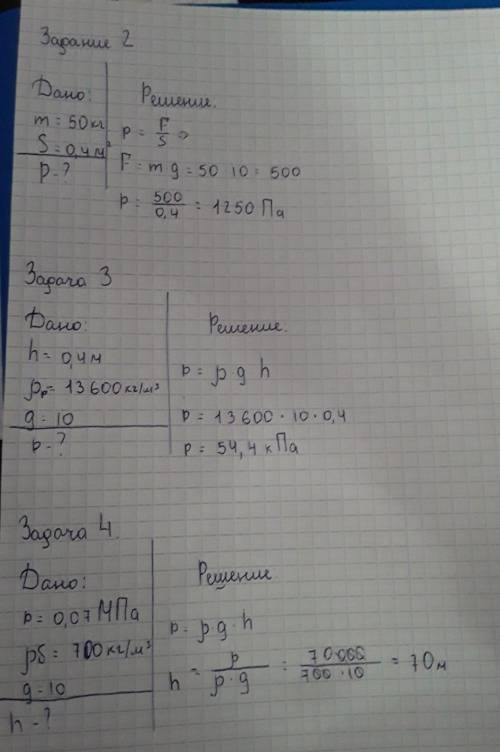 Задание 2
Дано:
m = 50 кг
S = 0,4 м²
p - ?
Решение.
p = F/S ⇒
F = m g = 50 · 10 = 500
p = 500/0,4 = 1250 Па
Задача 3
Дано:
h = 0,4 м
ρр = 13 600 кг/м³
g = 10
p - ?
Решение.
p = ρ g h
p = 13 600 · 10 · 0,4
p = 54,4 кПа
Задача 4
Дано:
p = 0,07 МПа
ρб = 700 кг/м³
g = 10
h - ?
Решение
p = ρ · g · h
h = p/ρ · g = 70 000/700 · 10 = 70 м